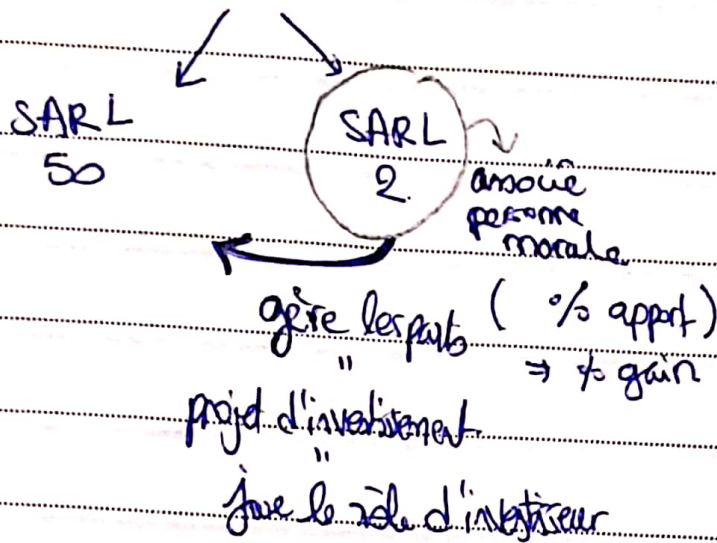 SARL
50
SARL
2
associé
personne
morale
gère les parts ( % apport)
" ⇒ % gain
projet d'investissement
"
joue le rôle d'investisseur